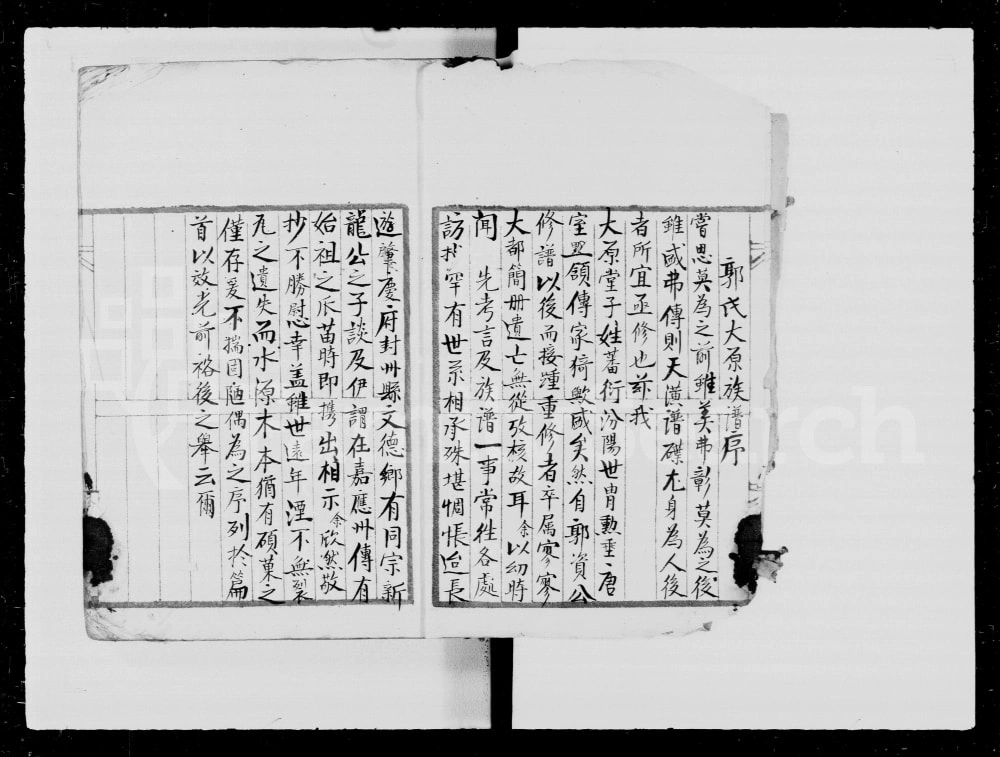 郭氏大原族譜序
嘗思莫為之前雖美弗彰莫為之後
雖盛弗傳則天潢譜牒尤身為人後
者所宜亟修也茲我
大原堂子姓蕃衍汾陽世冑勲垂唐
室盟領傳家猗歟盛矣然自耶資公
修譜以後而接踵重修者卒属寥寥
大都簡册遺亡無從攷核故耳余以幼時
闻 先考言及族譜一事常徃各處
訪抄罕有世系相承殊堪惆悵迨長
遊肇慶府封州縣文德鄉有同宗新
龍公之子談及伊謂在嘉應州傳有
始祖之瓜苗時即携出相示余欣然敬
抄不勝慰幸盖雖世遠年湮不無裂
瓦之遺失而水源木本猶有碩菓之
僅存爰不揣固陋偶為之序列於篇
首以效光前裕後之舉云爾